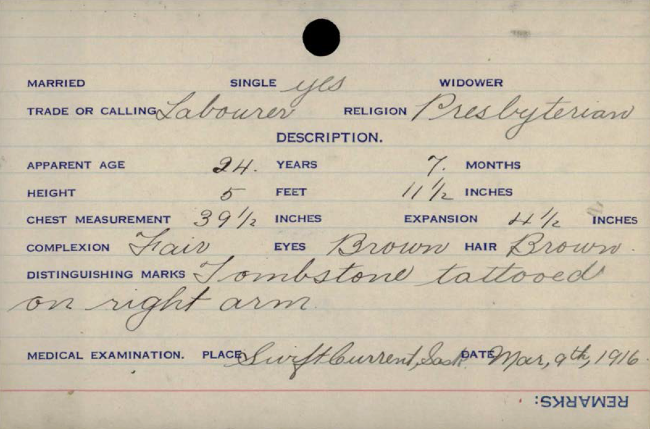 MARRIED SINGLE yes WIDOWER
TRADE OR CALLING Labourer RELIGION Presbyterian
DESCRIPTION.
APPARENT AGE 24. YEARS 7. MONTHS
HEIGHT 5 FEET 11 1/2 INCHES
CHEST MEASUREMENT 39 1/2 INCHES EXPANSION 4 1/2 INCHES
COMPLEXION Fair EYES Brown HAIR Brown.
DISTINGUISHING MARKS Tombstone tattooed
on right arm
MEDICAL EXAMINATION. PLACE Swift Current, Sask DATE Mar, 9th, 1916.
REMARKS: